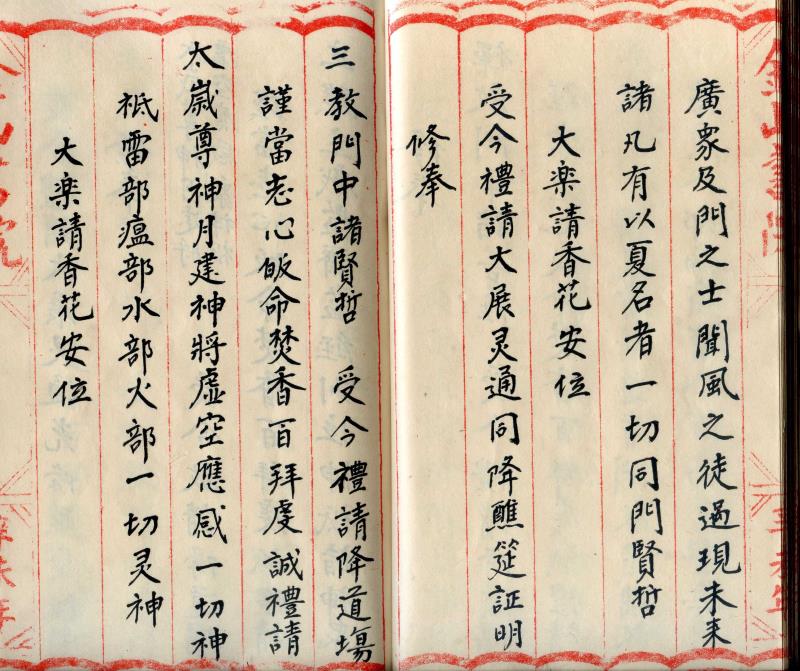 廣眾及門之士聞風之徒過現未來
諸凡有以夏名者一切同門賢哲
大楽請香花安位
受今禮請大展灵通同降醮筵証明
修奉
三教門中諸賢哲 受今禮請降道場
謹當志心皈命焚香百拜虔誠禮請
太歲尊神月建神將虛空應感一切神
祇雷部瘟部水部火部一切灵神
大楽請香花安位